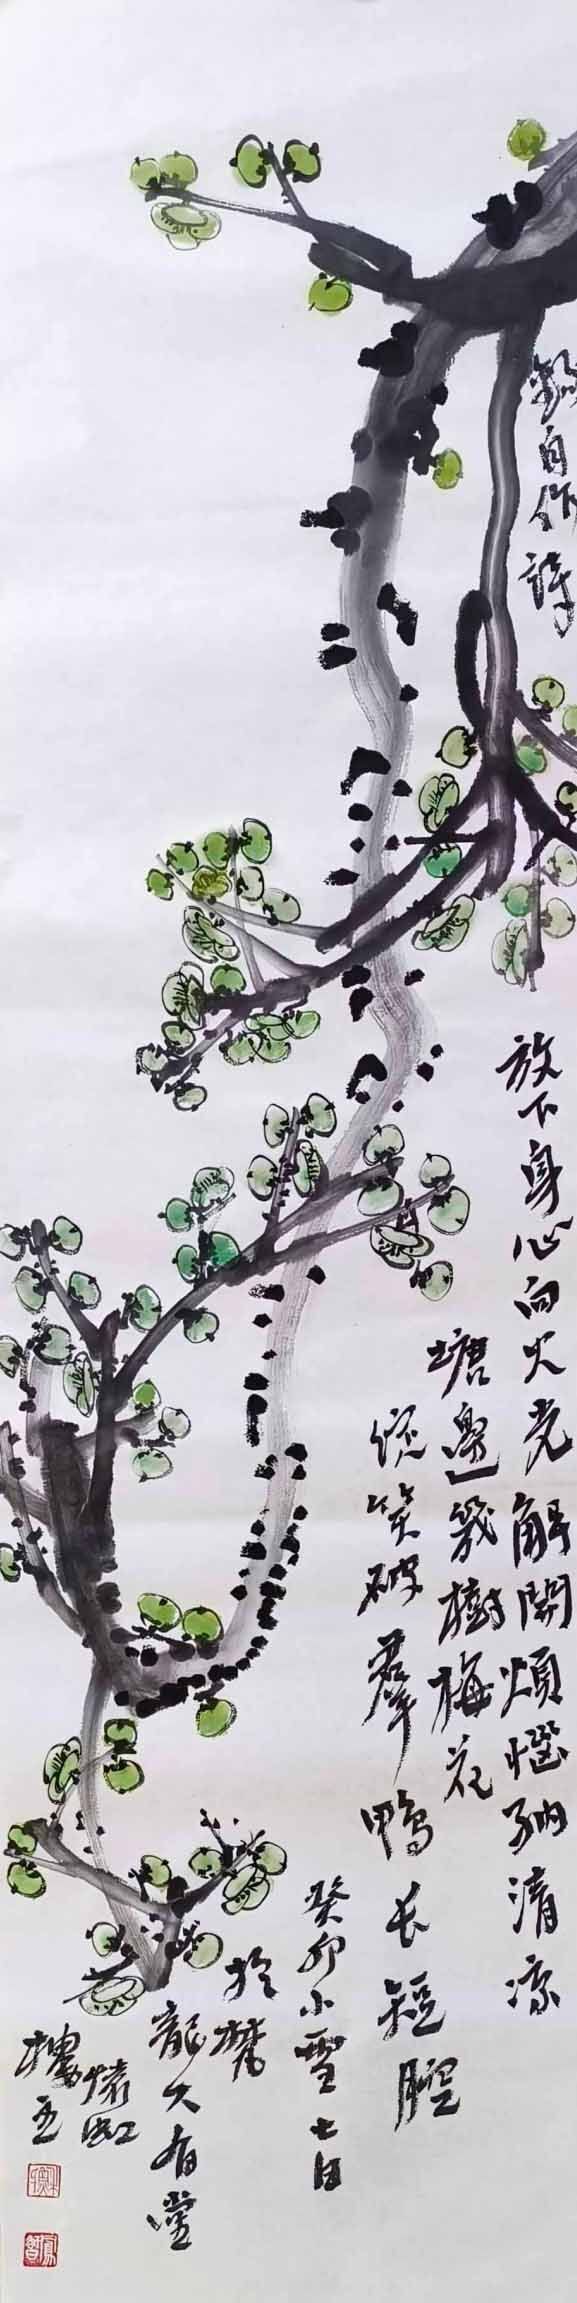 錄自作詩
放下身心向火光解開煩惱納清涼
塘邊幾樹梅花
綻笑破群鴨長短腔
癸卯小雪七日
於楚
龍大有堂
懷虹
樓主